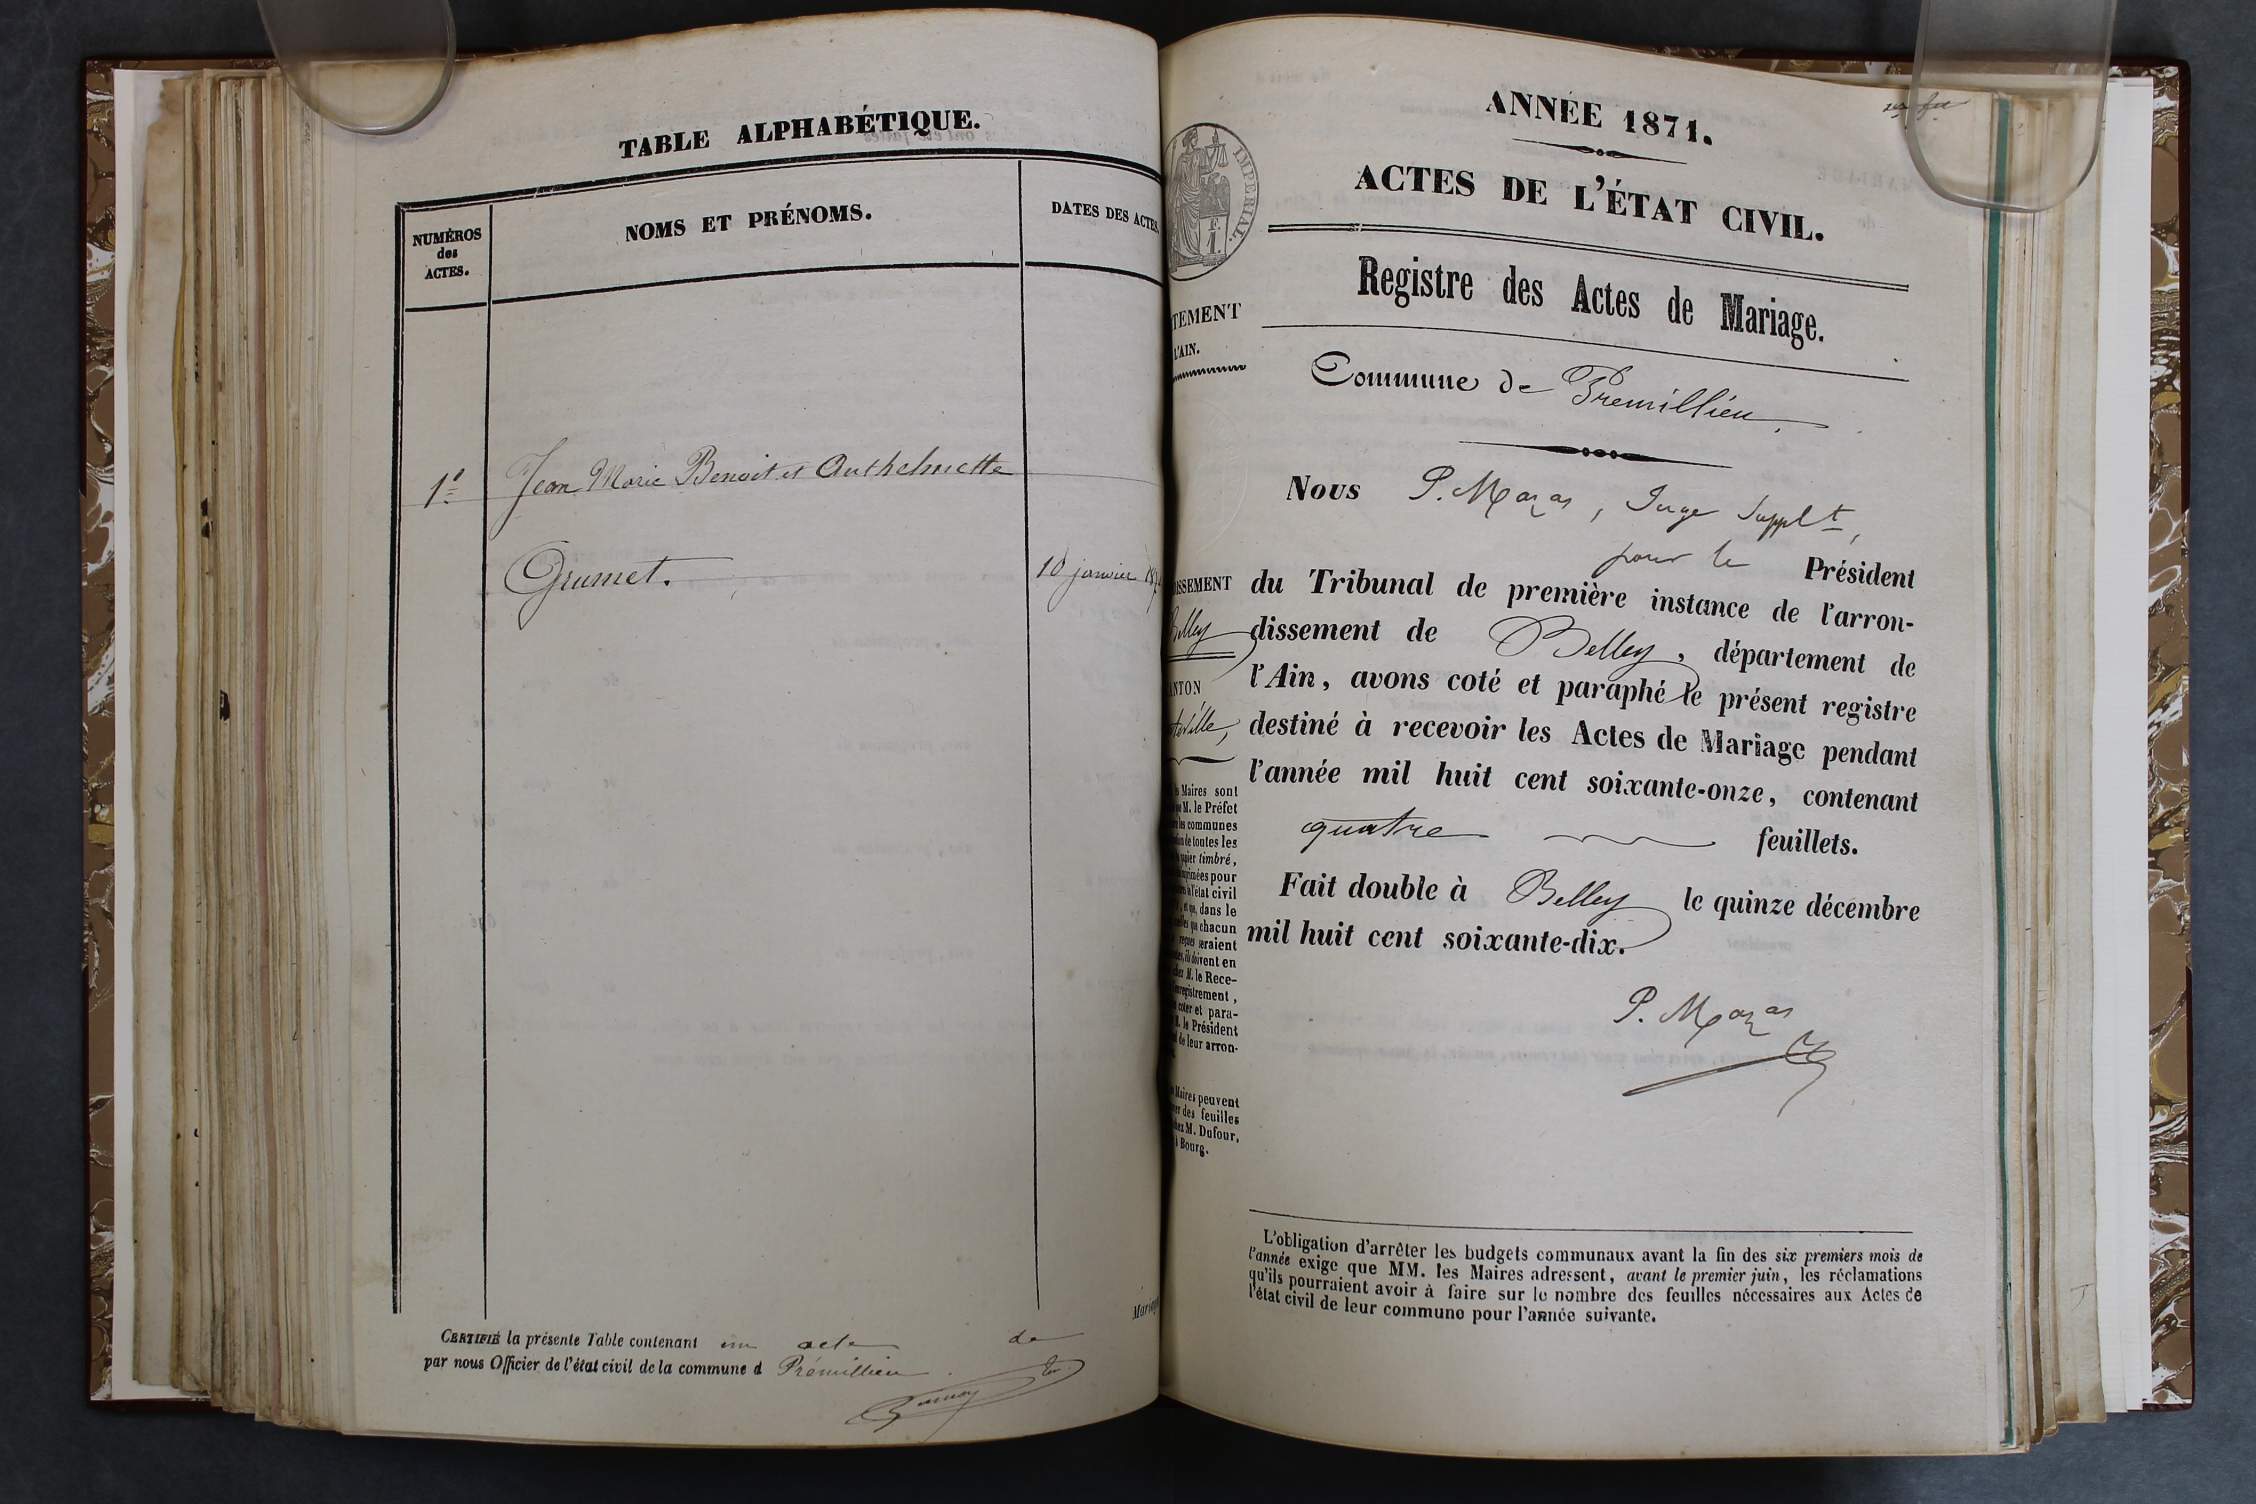 TABLE ALPHABÉTIQUE.
NUMÉROS
des
ACTES.
NOMS ET PRÉNOMS.
DATES DES ACTES.
1º
Jean Marie Benoit et Anthelmette
Grumet.
10 janvier
CERTIFIÉ la présente Table contenant un acte de
par nous Officier de l'état civil de la commune d Prémillieu
ANNÉE 1871.
ACTES DE L'ÉTAT CIVIL.
IMPERIAL.
Registre des Actes de Mariage.
TEMENT
L'AIN.
Commune de Premillieu
Nous P. Mazas, Juge Supplt,
pour le Président
du Tribunal de première instance de l'arron-
dissement de Belley, département de
l'Ain, avons coté et paraphé le présent registre
destiné à recevoir les Actes de Mariage pendant
l'année mil huit cent soixante-onze, contenant
quatre feuillets.
Fait double à Belley le quinze décembre
mil huit cent soixante-dix.
P. Mazas
ISSEMENT
Belley
ANTON
Maires sont
M. le Préfet
les communes
de toutes les
papier timbré,
imprimées pour
l'état civil
, dans le
chacun
seraient
ils doivent en
chez M. le Rece-
enregistrement,
coter et para-
M. le Président
de leur arron-
Maires peuvent
des feuilles
chez M. Dufour,
à Bourg.
L'obligation d'arrêter les budgets communaux avant la fin des six premiers mois de
l'année exige que MM. les Maires adressent, avant le premier juin, les réclamations
qu'ils pourraient avoir à faire sur le nombre des feuilles nécessaires aux Actes de
l'état civil de leur commune pour l'année suivante.